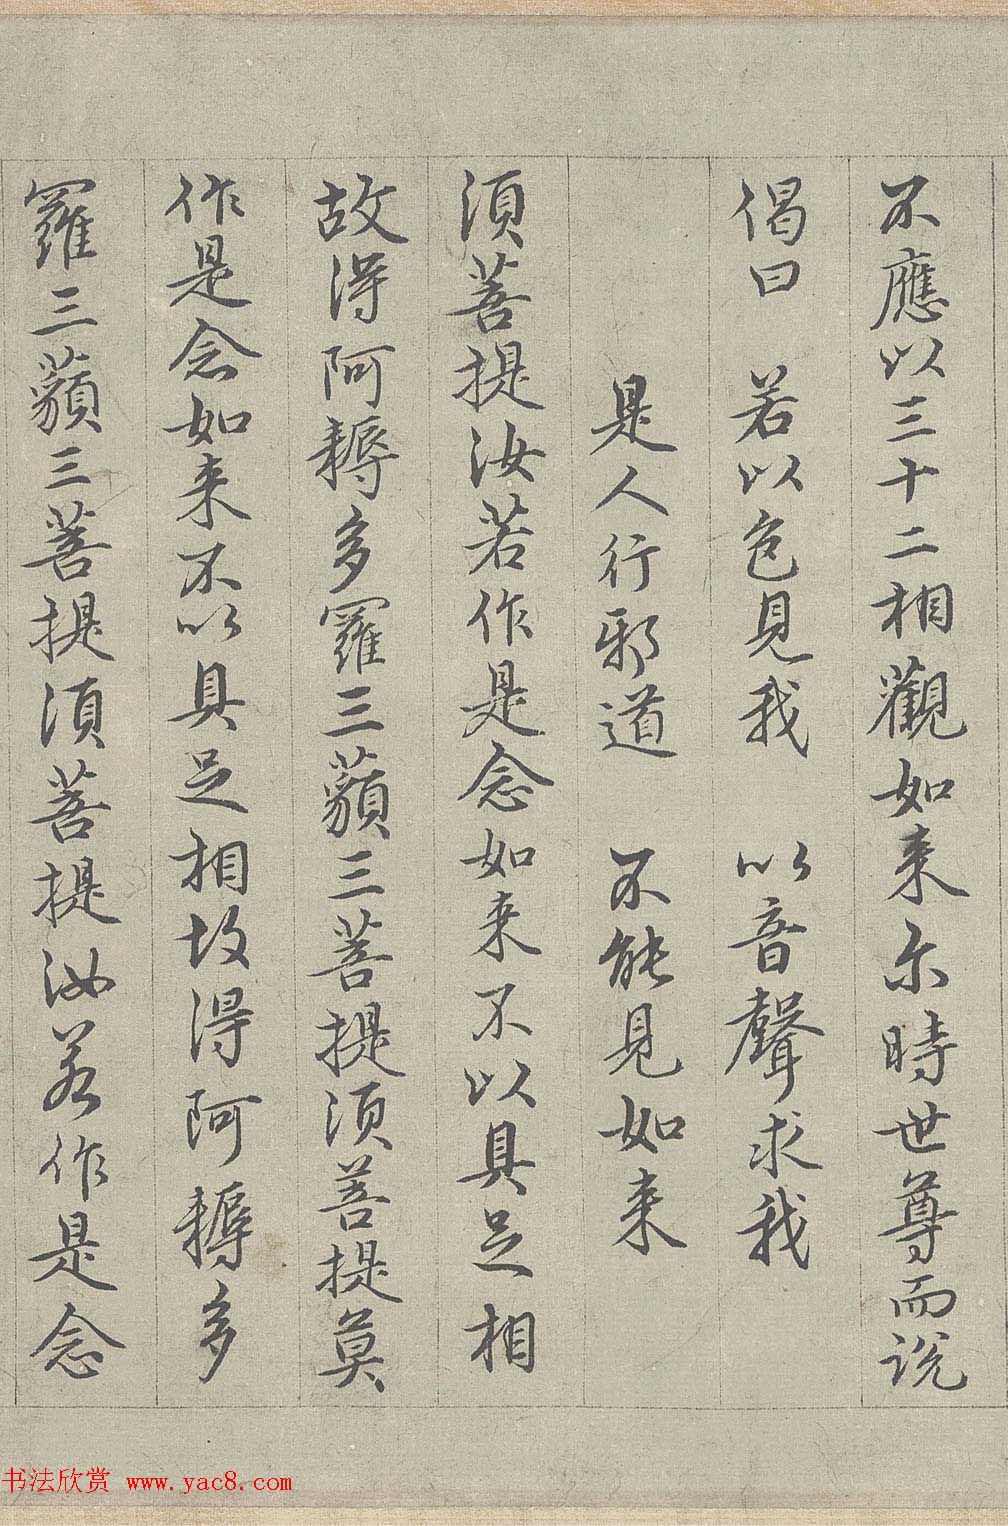 不應以三十二相觀如来尒時世尊而説
偈曰 若以色見我 以音聲求我
是人行邪道 不能見如来
湏菩提汝若作是念如来不以具足相
故得阿耨多羅三藐三菩提湏菩提莫
作是念如来不以具足相故得阿耨多
羅三藐三菩提湏菩提汝若作是念
书法欣赏 www.yac8.com